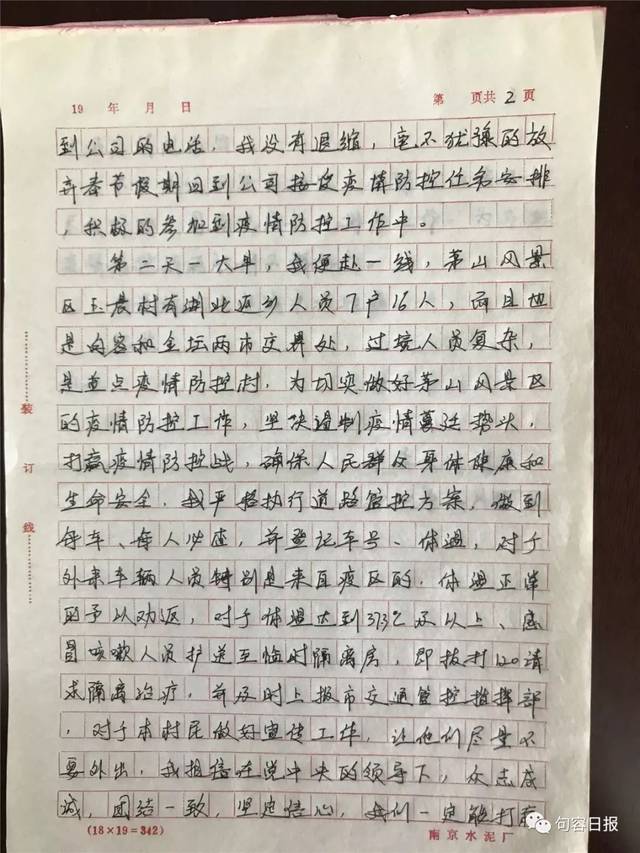 19 年 月 日 第 页共2页
到公司的电话，我没有退缩，毫不犹豫的放
弃春节假期回到公司接受疫情防控任务安排
，积极的参加到疫情防控工作中。
第二天一大早，我便赴一线，茅山风景
区玉晨村有湖北返乡人员7户16人，而且地
是句容和金坛两市交界处，过境人员复杂，
是重点疫情防控村，为切实做好茅山风景区
的疫情防控工作，坚决遏制疫情蔓延势头，
打赢疫情防控战，确保人民群众身体健康和
生命安全，我严格执行道路管控方案，做到
每车、每人必查，并登记车号、体温，对于
外来车辆人员特别是来自疫区的，体温正常
的予以劝返，对于体温达到37.3℃及以上、感
冒咳嗽人员护送至临时隔离房，即拨打120请
求隔离治疗，并及时上报市交通管控指挥部
，对于本村民做好宣传工作，让他们尽量不
要外出，我相信在党中央的领导下，众志成
诚，团结一致，坚定信心，我们一定能打赢
(18×19=342)
南京水泥厂
装
订
线
句容日报